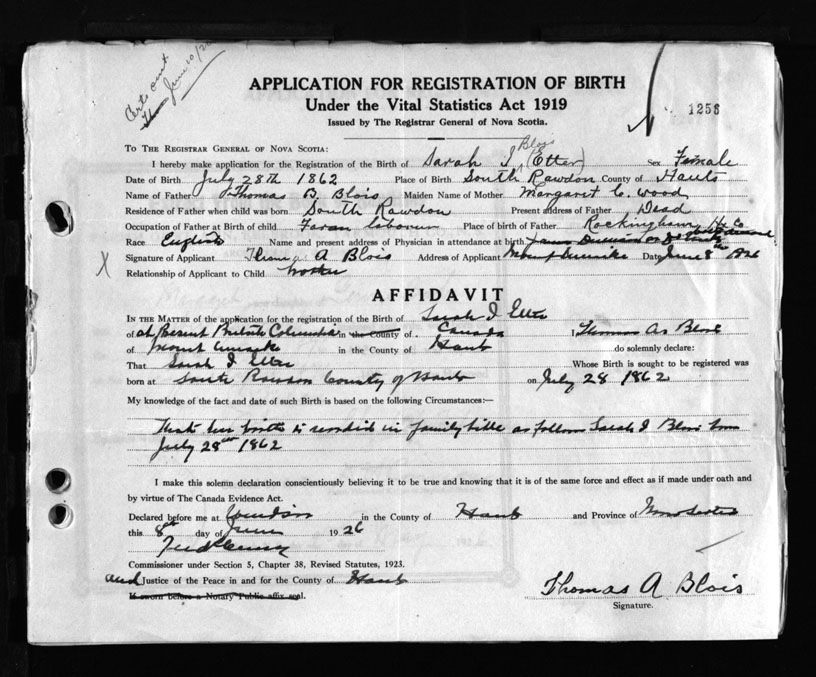 Certs out
June 10/26
APPLICATION FOR REGISTRATION OF BIRTH
Under the Vital Statistics Act 1919
Issued by The Registrar General of Nova Scotia.
1256
TO THE REGISTRAR GENERAL OF NOVA SCOTIA:
Blois
I hereby make application for the Registration of the Birth of Sarah I (Etter) Sex Female
Date of Birth July 28th 1862 Place of Birth South Rawdon County of Hants
Name of Father Thomas B. Blois Maiden Name of Mother Margaret C. Wood
Residence of Father when child was born South Rawdon Present address of Father Dead
Occupation of Father at Birth of child Farm laborer Place of birth of Father Rockingham Hx Co
Race English Name and present address of Physician in attendance at birth
Signature of Applicant Thomas A Blois Address of Applicant Mount Date June 8th 1926
X Relationship of Applicant to Child
AFFIDAVIT
IN THE MATTER of the application for the registration of the Birth of Sarah I Etter
of at Present British Columbia in the County of Canada I Thomas A Blois
of Mount in the County of Hants do solemnly declare:
That Sarah I Etter Whose Birth is sought to be registered was
born at South Rawdon County of Hants on July 28 1862
My knowledge of the fact and date of such Birth is based on the following Circumstances:—
That her birth is recorded in family bible as follows Sarah I Blois born
July 28th 1862
I make this solemn declaration conscientiously believing it to be true and knowing that it is of the same force and effect as if made under oath and
by virtue of The Canada Evidence Act.
Declared before me at in the County of Hants and Province of Nova Scotia
this 8th day of June 1926
Commissioner under Section 5, Chapter 38, Revised Statutes, 1923.
and Justice of the Peace in and for the County of Hants
If sworn before a Notary Public affix seal.
Thomas A Blois
Signature.